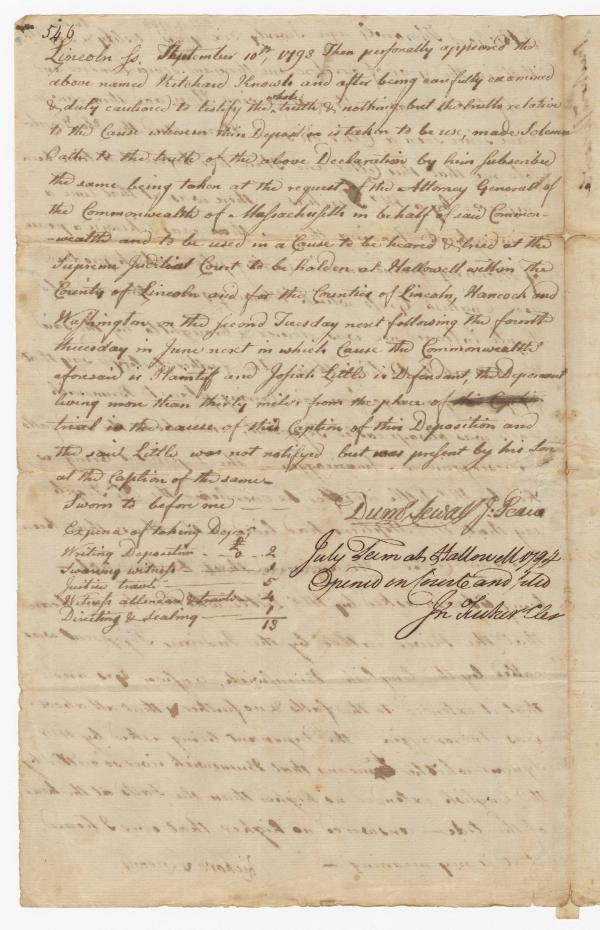 546
Lincoln ss. Sheptember 10th, 1793 Then personally appeared the
above named Ritchard Knowls and after being carfully examined
& duly cautioned to testify the whole truth & nothing but the truth relative
to the Cause wherein this Deposition is taken to be use, made Solemn
Oath to the truth of the above Declaration by him Subscribed
the same being taken at the request of the Attorney Generall of
the Commonwealth of Massachusetts in behalf of said Common-
-wealth and to be used in a Cause to be heared & tried at the
Supreme Juditial Court to be holden at Hallowell within the
County of Lincoln and for the Counties of Lincoln, Hancock and
Washington on the second Tuesday next following the fourth
thuesday in June next in which Cause the Commonwealth
aforesaid is Plaintif and Josiah Little is Defendant, the Deponent
living more than thirty miles from the place of this Caption
trial is the cause of this Caption of this Deposition and
the said Little was not notifyed but was present by his Son
at the Caption of the same
Sworn to before me —
Dumr Sewall J. Peace
Expense of taking Depo
Writing Deposition - 2
Swaring witness 1
Justice travil 5
Witness attendance & travil 4
Directing & sealing 1
13
July Term at Hallowell 1794
Opened in Court and filed
Jn Tucker Cler